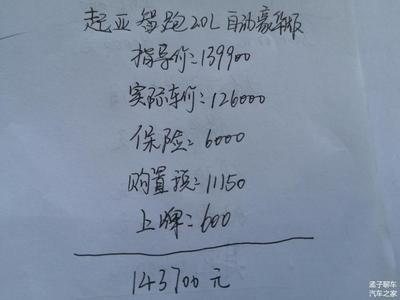 起亚智跑20L自动豪华版
指导价:139900
实际车价:126000
保险:6000
购置预:11150
上牌:600
143700元
孟子聊车
汽车之家